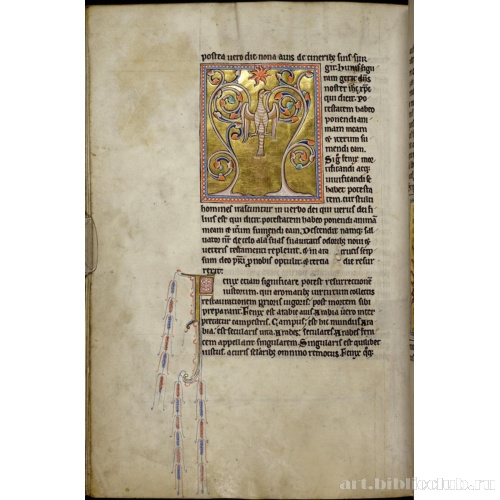 postea vero die nona avis de cineribus suis sur
git. Huius figu
ram gerit dns
noster ihc xpc
qui dicit. po
testatem habeo
ponendi ani
mam meam
et iterum su
mendi eam.
Si g fenix mor
tificandi atq;
vivificandi se
habet potesta
tem. cur stulti
homines irascuntur in verbo dei qui verus dei fi
lius est qui dicit. potestatem habeo ponendi animam
meam et iterum sumendi eam. Descendit namq; sal
vator nr de celo alas suas suavitatis odoribus novi et
veteris testamenti replevit. et in ara crucis seip
sum deo patri pro nobis optulit. et tercia die resur
rexit.
Fenix etiam significare potest resurrectionem
iustorum. qui aromatibus virtutum collectis
restauracionem prioris vigoris. post mortem sibi
preparant. Fenix est arabie avis. Arabia vero inter
pretatur campestris. Campus. est hic mundus. Ara
bia. est secularis vita. Arabes. seculares. Arabes feni
cem appellant singularem. Singularis est quilibet
iustus. a curis secularibus omnino remotus. Fenix q;
art.biblioclub.ru